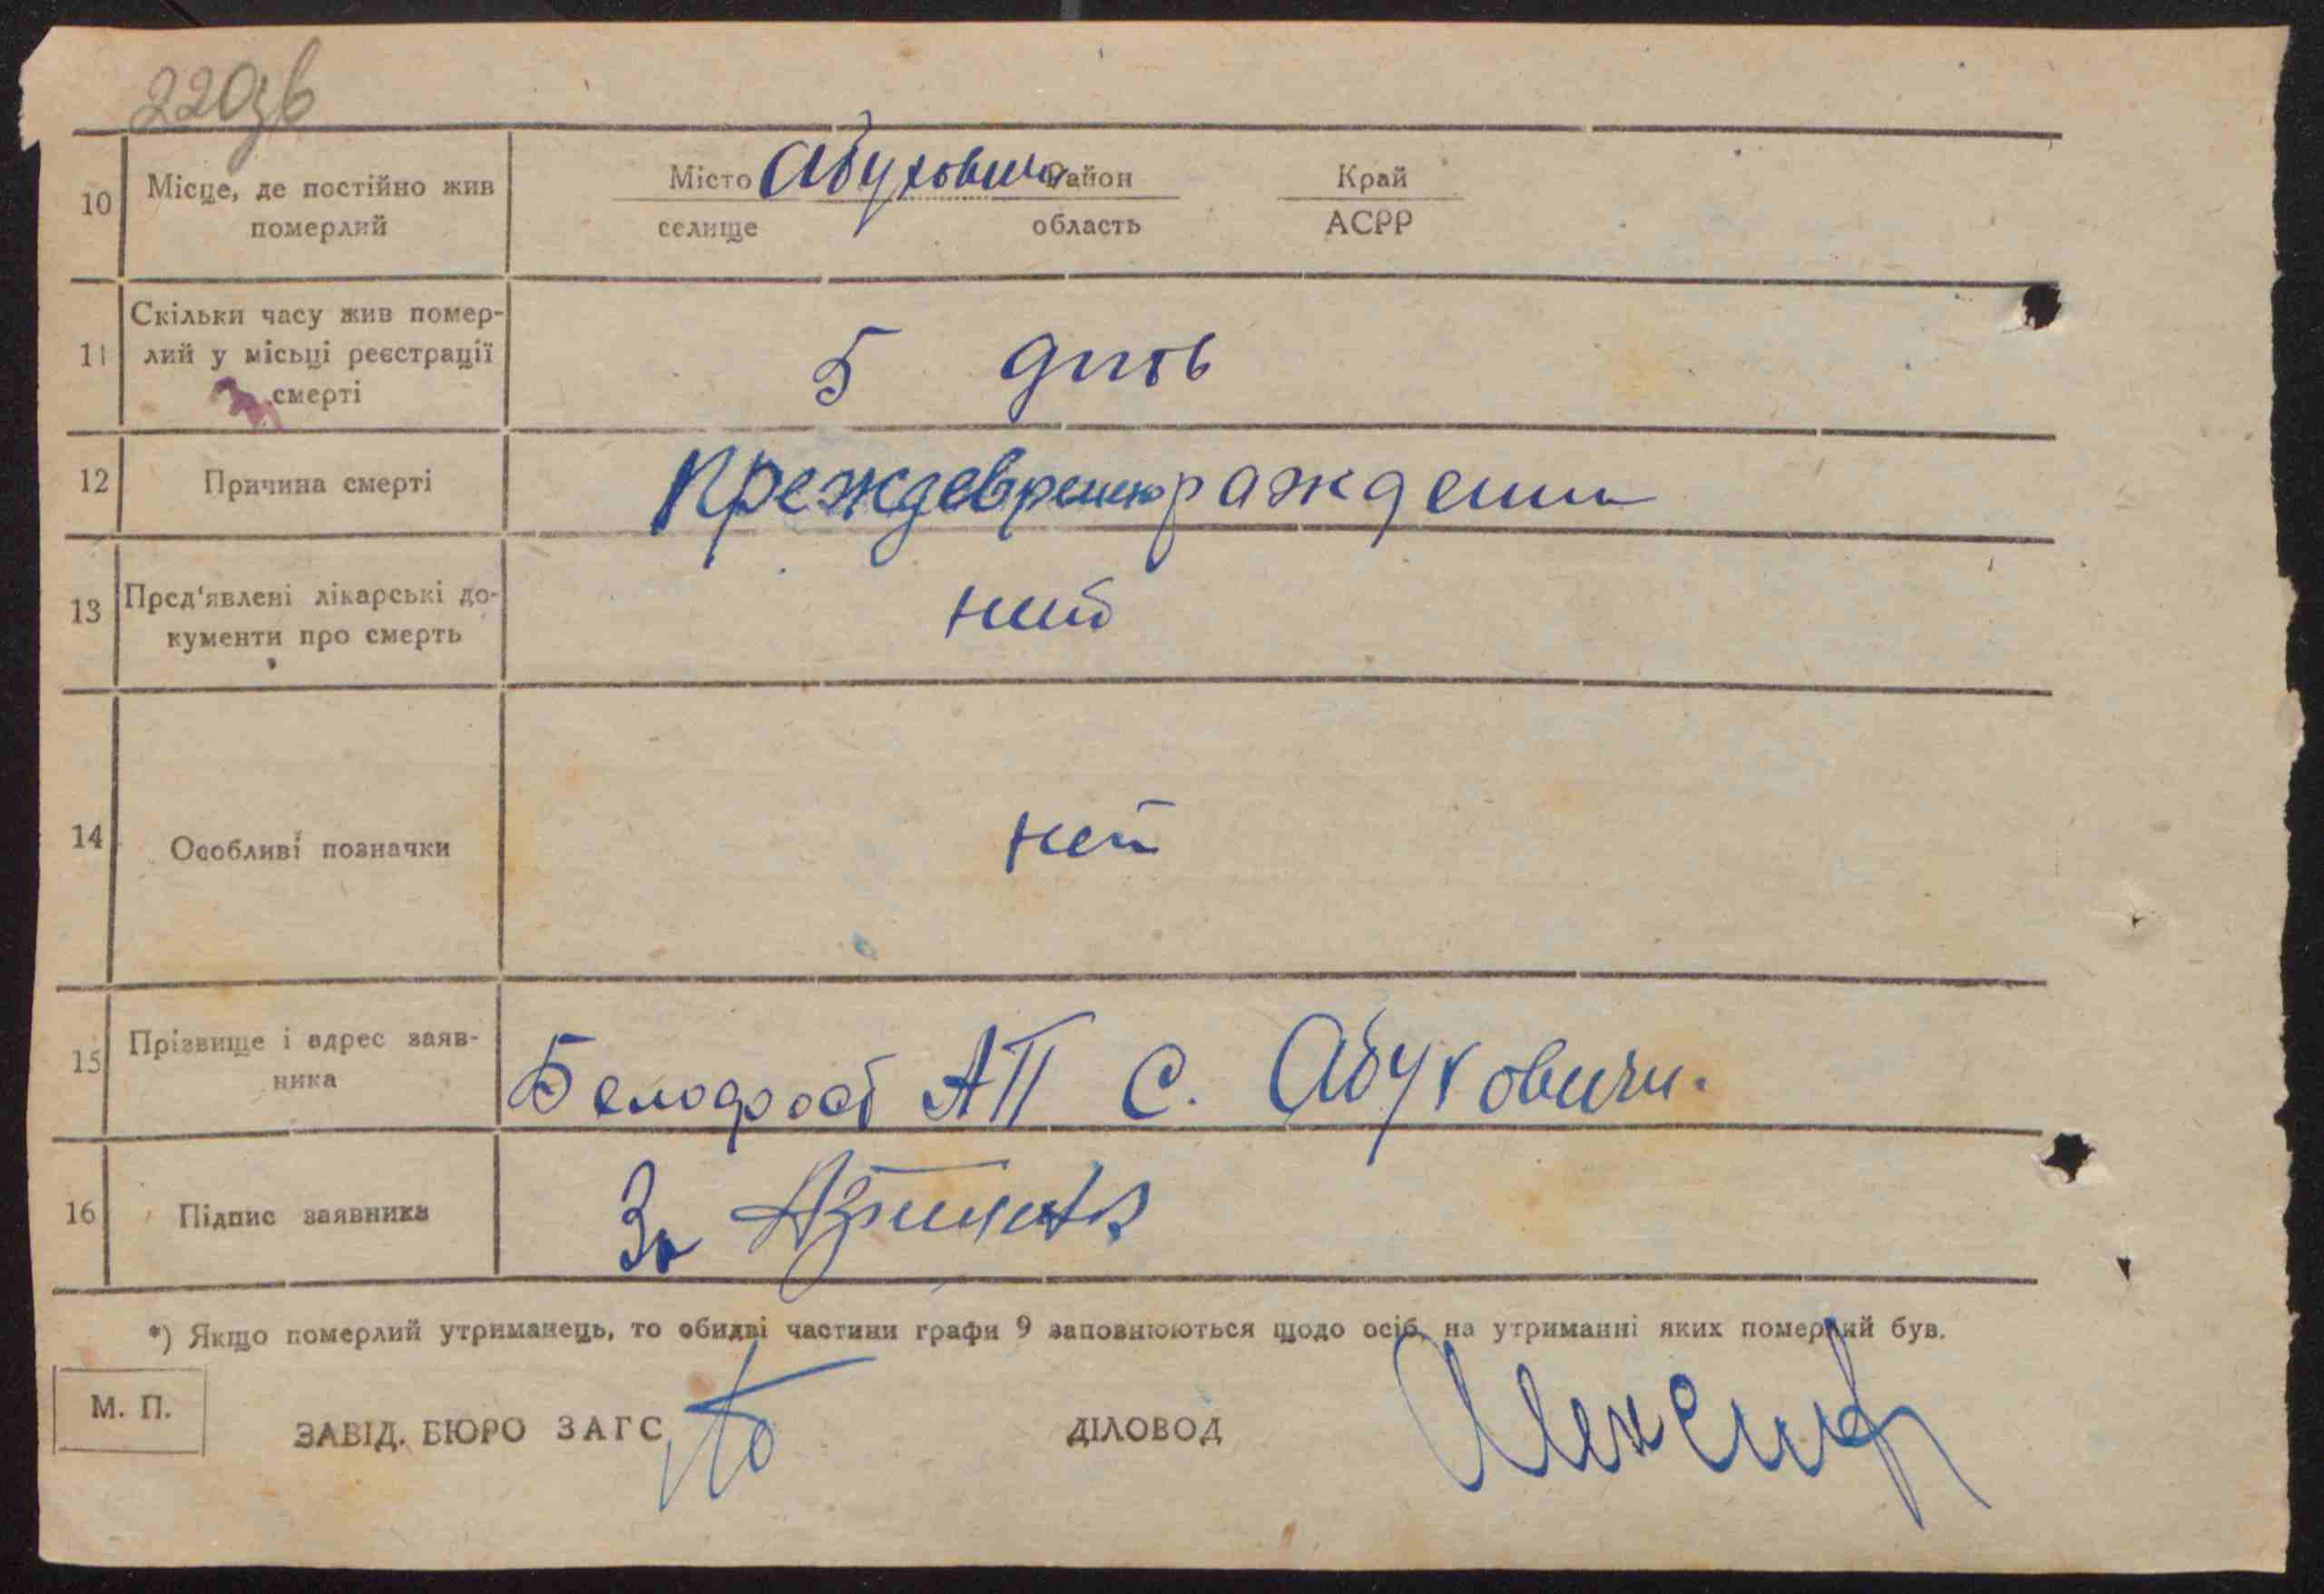 220зв
10 Місце, де постійно жив
померлий
Місто Абуховичи район Край
селище область АСРР
11 Скільки часу жив помер-
лий у місьці реєстрації
смерті
5 днов
12 Причина смерті Преждевременораждении
13 Пред'явлені лікарські до-
кументи про смерть
нет
14 Особливі позначки нет
15 Прізвище і адрес заяв-
ника
АП С. Абуховичи.
16 Підпис заявника За
*) Якщо померлий утриманець, то обидві частини графи 9 заповнюються щодо осіб, на утриманні яких померлий був.
М. П.
ЗАВІД. БЮРО ЗАГС ДІЛОВОД